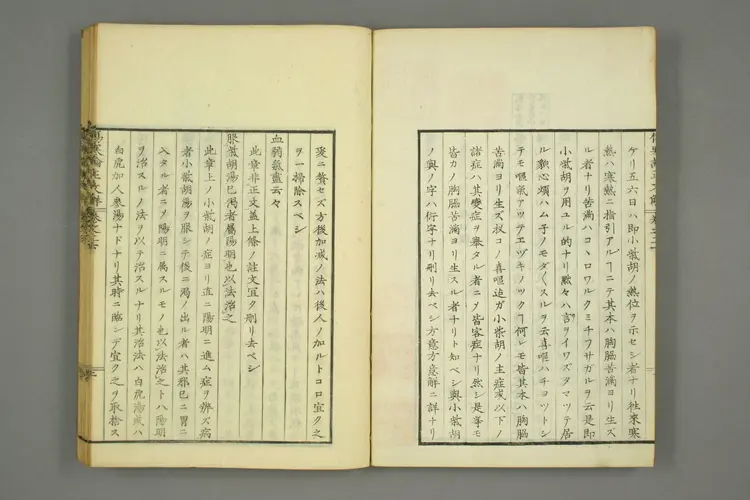 ケリ五六日ハ即小柴胡ノ熱位ヲ示セシ者ナリ徃來寒
熱ハ寒熱ニ指引アルヿニテ其本ハ胸脇苦滿ヨリ生ズ
ル者ナリ苦滿ハコヽロワルクミチフサガルヲ云是即
小柴胡ヲ用ユル的ナリ黙々ハ言ヲイワズダマツテ居
ル㒵心煩ハムナノモダ〱スルヲ云喜嘔ハチヨツトシ
テモ嘔氣アツテエヅキノツクヿ何レモ皆其本ハ胸脇
苦滿ヨリ生ズ尤コノ喜嘔迄ガ小柴胡ノ主症或以下ノ
諸症ハ其變症ヲ舉タル者ニノ皆客症ナリ然シ是等モ
皆カノ胸脇苦滿ヨリ生スル者ナリト知ベシ與小柴胡
ノ與ノ字ハ衍字ナリ刪リ去ベシ方意方意解ニ詳ナリ
聚ニ贅セズ方後加减ノ法ハ後人ノ加ルトコロ宜ク之
ヲ一掃除スベシ
血弱氣盡云々
此章非正文蓋上條ノ註文宜ク刪リ去ベシ
服柴胡湯已渇者屬陽明也以法治之
此章上ノ小柴胡ノ症ヨリ直ニ陽明ニ進ム症ヲ辨ズ病
者小柴胡湯ヲ服シテ後ニ渇ノ出ル者ハ其邪已ニ胃ニ
入タル者ニノ陽明ニ屬スルモノ也以法治之トハ陽明
ヲ治スルノ法ヲ以テ治スルナリ其治法ハ白虎湯或ハ
白虎加人參湯ナドナリ其時ニ臨ンデ宜ク之ヲ取捨ス